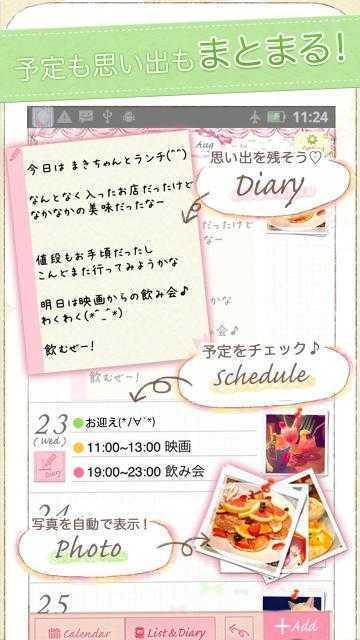 予定も思い出もまとまる!
11:24
Aug
思い出を残そう♡
Diary
今日は まきちゃんとランチ(^^)
なんとなく入ったお店だったけど
なかなかの美味だったなー
値段もお手頃だったし
こんどまた行ってみようかな
明日は映画からの飲み会♪
わくわく(*^_^*)
飲むぜー!
だったけど
なー
かな
会♪
飲むぜー!
予定をチェック♪
schedule
23
(Wed)
Diary
お迎え(*/∀`*)
11:00~13:00 映画
19:00~23:00 飲み会
24
写真を自動で表示!
Photo
25
Calendar
List & Diary
+Add